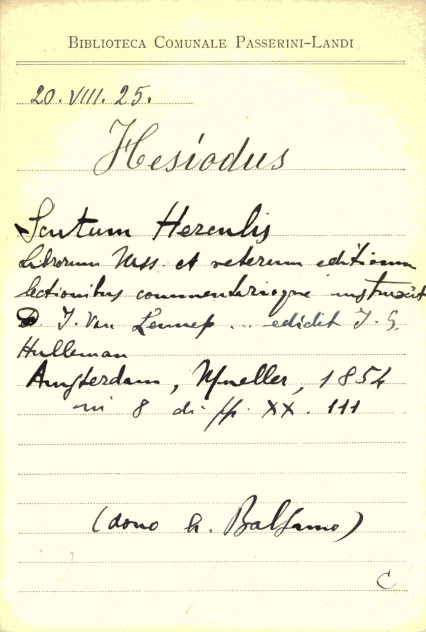 BIBLIOTECA COMUNALE PASSERINI-LANDI
20. VIII. 25.
Hesiodus
Scutum Herculis
Librorum Mss. et veterum editionum
lectionibus commentarioque instruxit
D. J. Van Lennep ... edidit J. G.
Hulleman
Amsterdam, Mueller, 1854
in 8 di pp. XX. 111
(dono A. Balsamo)
C